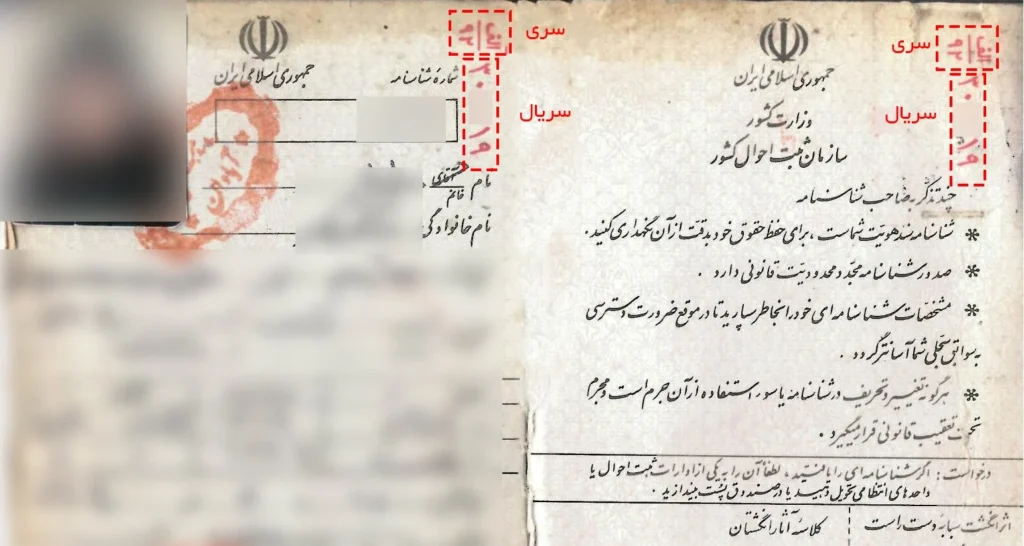 سری
الف
۹۲
سریال
۳۰
۱۹
جمهوری اسلامی ایران
وزارت کشور
سازمان ثبت احوال کشور
چند تذکر به صاحب شناسنامه
* شناسنامه سند هویت شماست ، برای حفظ حقوق خود بدقت از آن نگهداری کنید .
* صدور شناسنامه مجدد محدودیت قانونی دارد .
* مشخصات شناسنامه ای خود را بخاطر بسپارید تا در موقع ضرورت دسترسی
به سوابق سجلی شما آسانتر گردد .
* هرگونه تغییر و تحریف در شناسنامه یا سوء استفاده از آن جرم است و مجرم
تحت تعقیب قانونی قرار میگیرد .
درخواست : اگر شناسنامه ای را یافتید ، لطفاً آن را به یکی از ادارات ثبت احوال یا
واحدهای انتظامی تحویل دهید یا در صندوق پست بیندازید .
اثر انگشت سبابه دست راست
کلاسه آثار انگشتان
سری
الف
۹۲
سریال
۳۰
۱۹
جمهوری اسلامی ایران
شماره شناسنامه
نام
خانم
نام خانوادگی